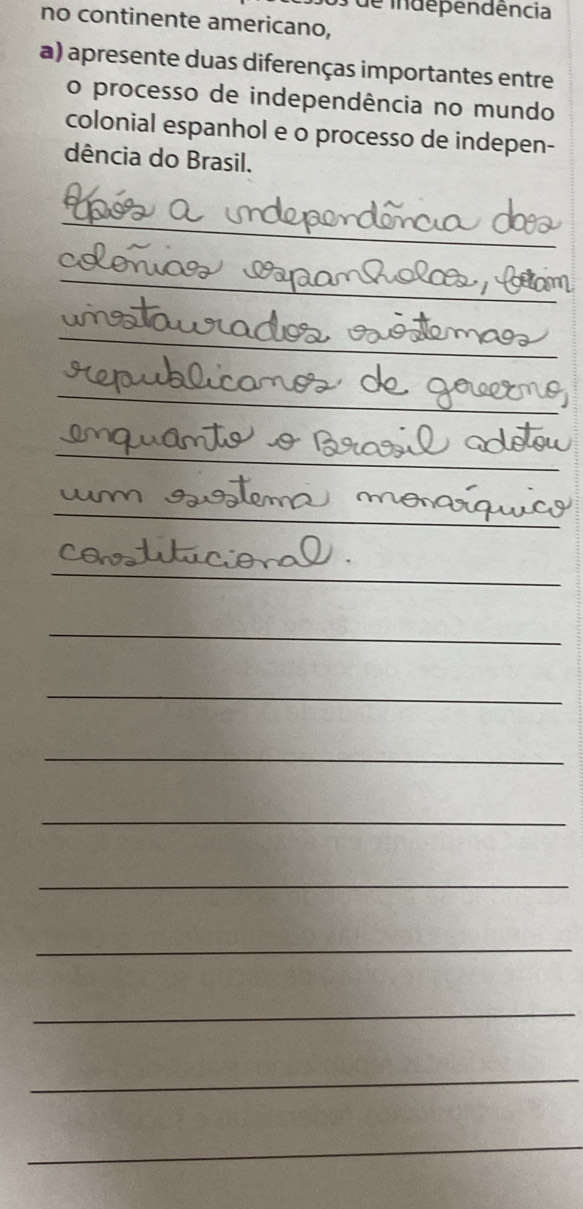 de independência
no continente americano,
a) apresente duas diferenças importantes entre
o processo de independência no mundo
colonial espanhol e o processo de indepen-
dência do Brasil.
Após a independência das
colônias espanholas, foram
instaurados sistemas
republicanos de governo,
enquanto o Brasil adotou
um sistema monárquico
constitucional.